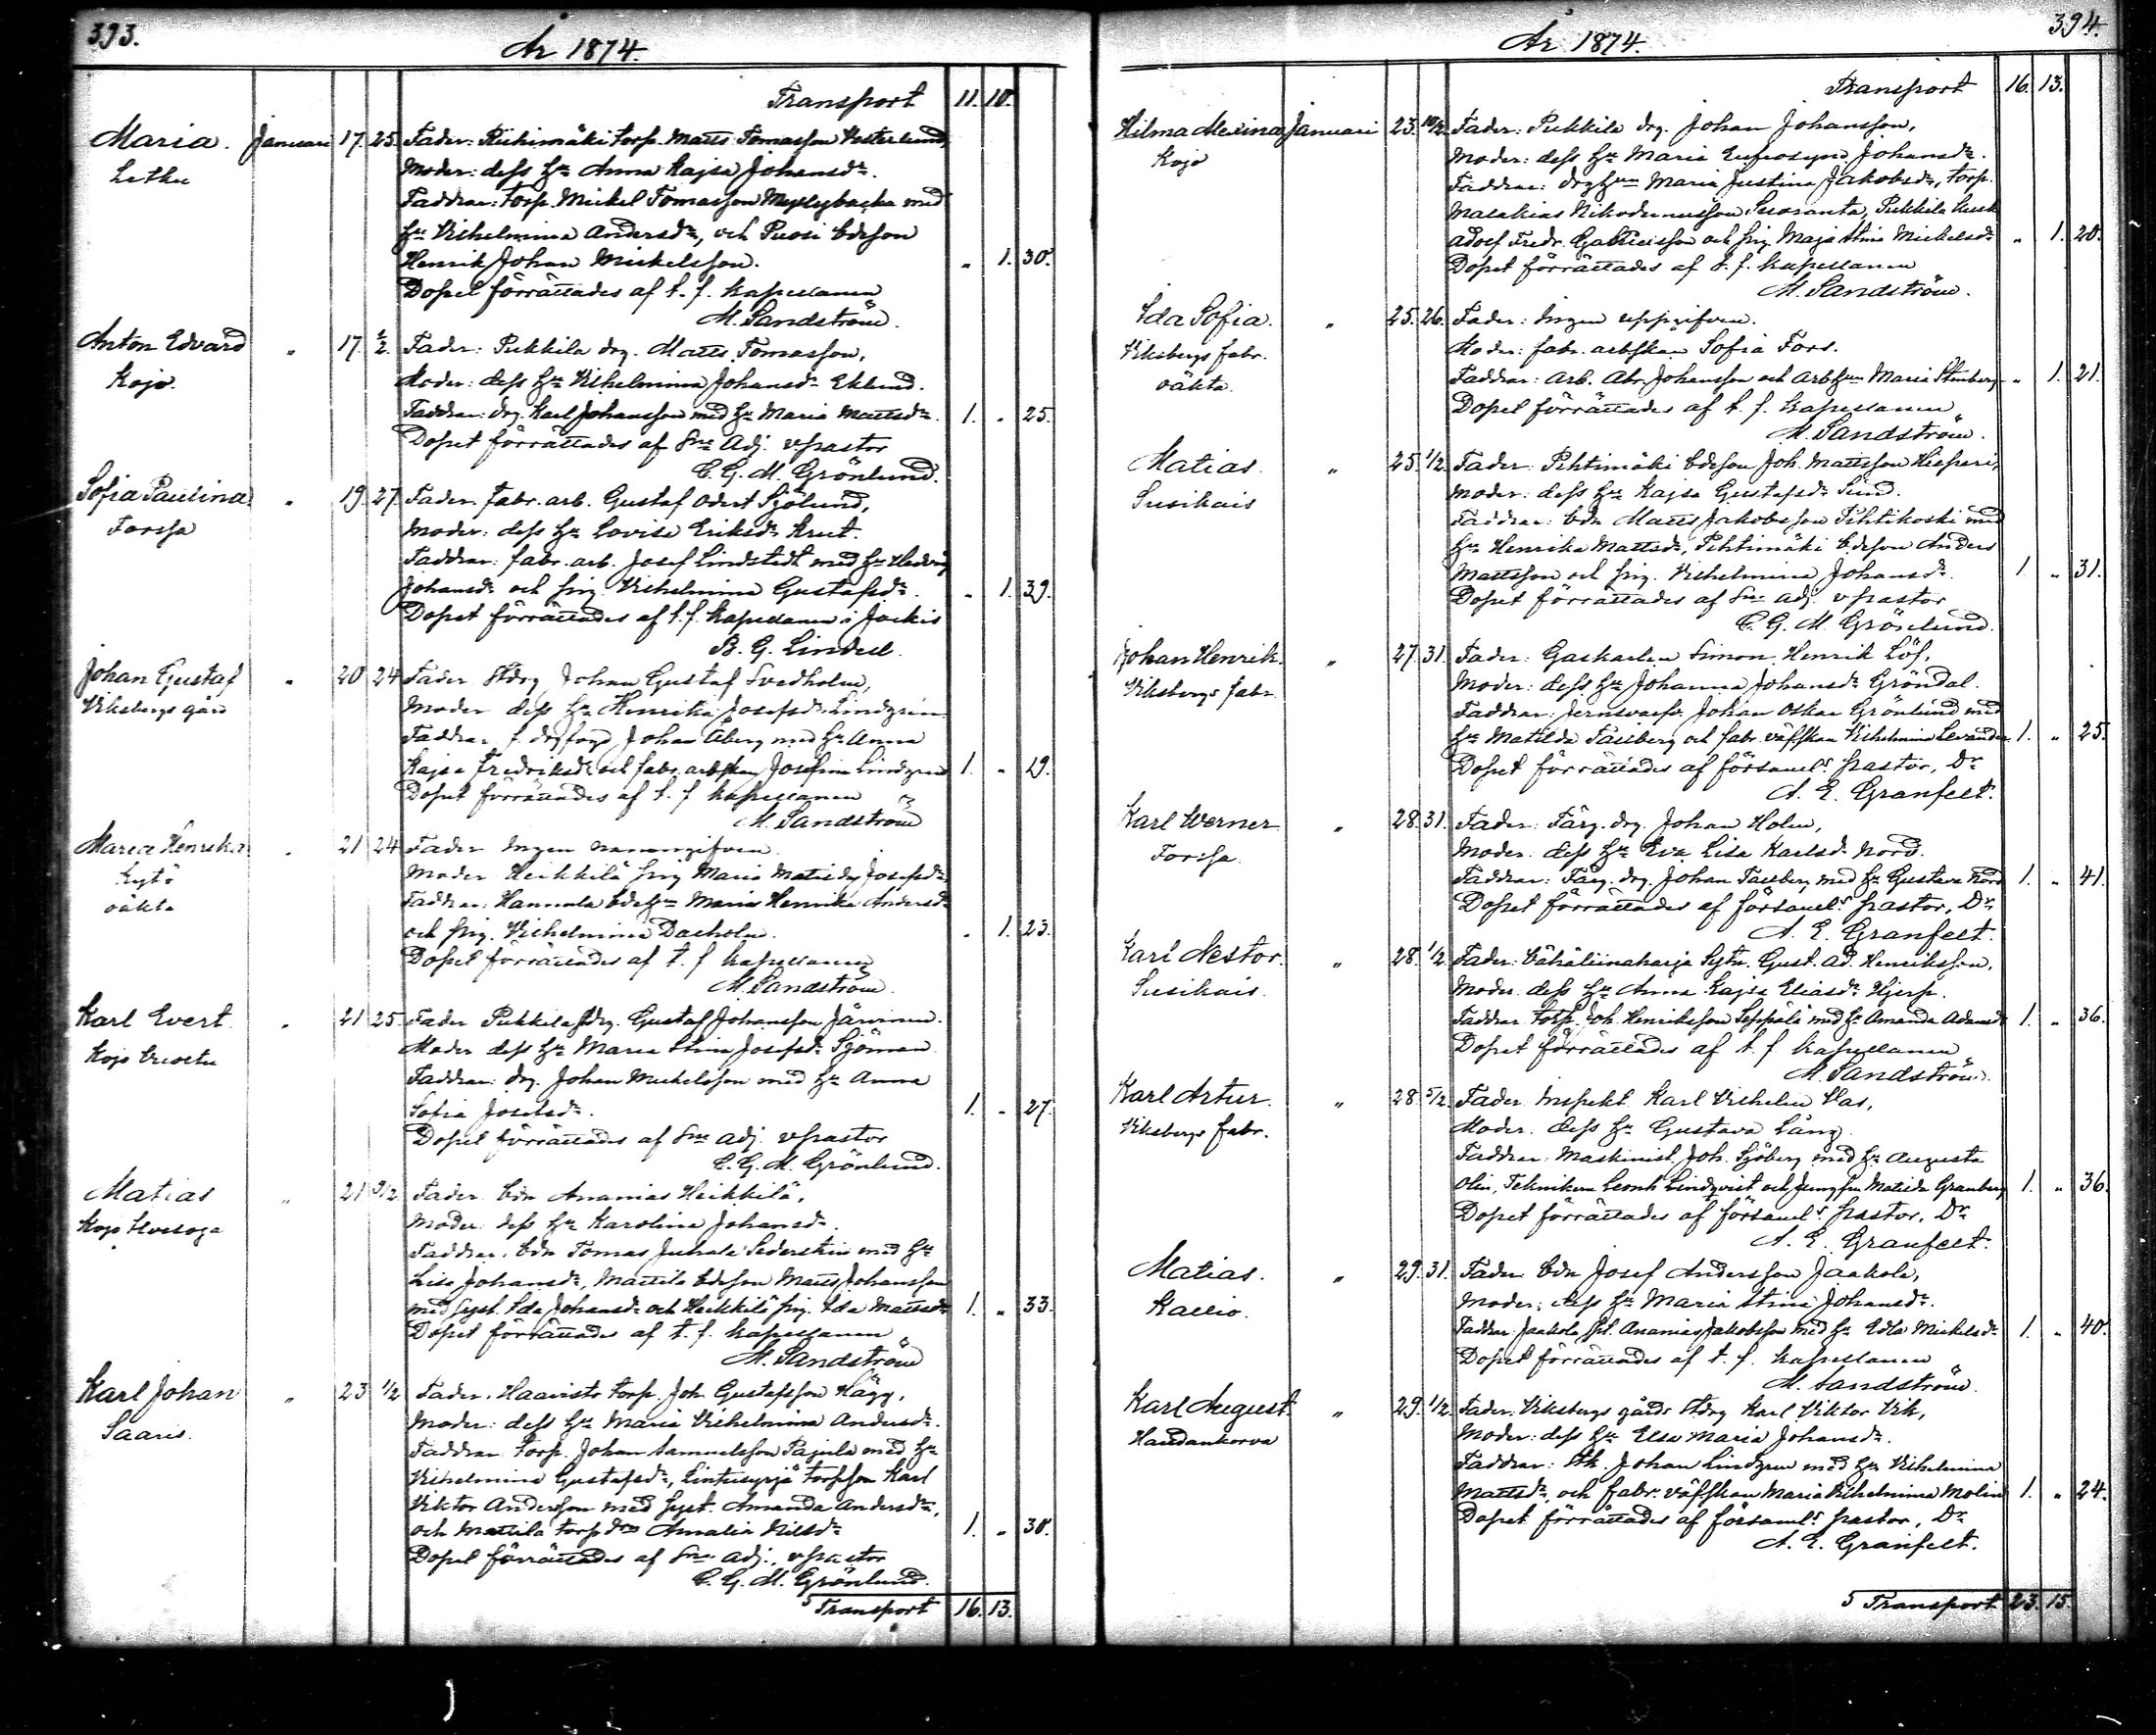 393.
År 1874.
Transport 11. 10.
Maria. Januari 17. 25. Fader: Riihimäki torp. Matts Tomasson Vesterlund,
Letku Moder: dess h:u Anna Kajsa Johansd:r.
Faddrar: torp. Mickel Tomasson Myllybacka med
h:u Vilhelmina Andersd:r, och Puosi bdeson
Henrik Johan Mickelsson. „ 1. 30.
Dopet förrättades af t. f. kapellanen
M. Sandström.
Anton Edvard „ 17. 1/2. Fader: Pukkila drg. Matts Tomasson,
Kojo. Moder: dess h:u Vilhelmina Johansd:r Eklund.
Faddrar: drg. Karl Johansson med h:u Maria Mattsd:r. 1. „ 25.
Dopet förrättades af S:ne Adj. v. pastor
C. G. M. Grönlund.
Sofia Paulina „ 19. 27. Fader: fabr. arb. Gustaf Odert Sjölund,
Forssa Moder: dess h:u Lovisa Eriksd:r Krut.
Faddrar: fabr. arb. Josef Lindstedt med h:u Hedvig
Johansd:r och pig. Vilhelmina Gustafsd:r. „ 1. 39.
Dopet förrättades af t. f. kapellanen i Jockis
B. G. Lindell.
Johan Gustaf „ 20 24 Fader Stdrg Johan Gustaf Svedholm,
Viksbergs gård Moder dess h:u Henrika Josefsd:r Lindgren
Faddrar f. drg fogd Johan Åberg med h:u Anna
Kajsa Fredriksd:r och fabr. arbskan Josefina Lindgren 1. „ 19.
Dopet förrättades af t. f. kapellanen
M. Sandström
Maria Henrika „ 21 24 Fader Ingen namngifven
Kytö Moder Heikkilä pig Maria Matilda Josefsd:r
oäkta Faddrar: Hannula bdeh:u Maria Henrika Andersd:r
och pig. Vilhelmina Dacholm. „ 1. 23.
Dopet förrättades af t. f. kapellanen
M. Sandström.
Karl Evert „ 21 25. Fader Pukkila Stdrg. Gustaf Johansson Järvinen.
Kojo Moder dess h:u Maria Stina Josefsd:r Sjöman
Faddrar: drg. Johan Mickelsson med h:u Anna
Sofia Josefsd:r. 1. „ 27.
Dopet förrättades af S:ne adj. v. pastor
C. G. M. Grönlund.
Matias „ 21 Fader bdn Ananias Heikkilä,
Kojo Moder: dess h:u Karolina Johansd:r.
Faddrar. bdn Tomas Juhala Sederstén med h:u
Lisa Johansd:r, Mattila bdeson Matts Johansson
med syst. Ida Johansd:r och Heikkilä pig. Ida Mattsd:r 1. „ 33.
Dopet förrättades af t. f. kapellanen
M. Sandström
Karl Johan „ 23 1/2 Fader. Haavisto torp. Joh. Gustafsson Hägg,
Saaris. Moder: dess h:u Maria Vilhelmina Andersd:r.
Faddrar torp. Johan Samuelsson Pajula med h:u
Vilhelmina Gustafsd:r, Lintusyrjä torpson Karl
Viktor Andersson med syst. Amanda Andersd:r,
och Mattila torpd:r Amalia Nilsd:r 1. „ 30.
Dopet förrättades af S:ne adj., v. pastor
C. G. M. Grönlund.
Transport 16. 13.
394.
År 1874.
Transport 16. 13.
Hilma Januari 23. 10/2. Fader: Pukkila drg. Johan Johansson,
Kojo Moder: dess h:u Maria Eufrosyna Johansd:r.
Faddrar: drgh:un Maria Justina Jakobsd:r, torp.
Malakias Nikodemusson Suoranta, Pukkila kusk
Adolf Fredr. Gabrielsson och pig. Maja Stina Mickelsd:r „ 1. 20.
Dopet förrättades af t. f. kapellanen
M. Sandström.
Ida Sofia. „ 25. 26. Fader: Ingen uppgifven.
Viksbergs fabr. Moder: fabr. arbskan Sofia Fors.
oäkta. Faddrar: arb. Abr. Johansson och arbh:un Maria Stenberg „ 1. 21.
Dopet förrättades af t. f. kapellanen
M. Sandström.
Matias. „ 25. 1/2. Fader: Pihtimäki bdeson Joh. Mattsson
Susikais Moder: dess h:u Kajsa Gustafsd:r Sund.
Faddrar: bdn Matts Jakobsson Pihtikoski med
h:u Henrika Mattsd:r, Pihtimäki bdeson Anders
Mattsson och pig. Vilhelmina Johansd:r. 1. „ 31.
Dopet förrättades af S:ne adj. v pastor
C. G. M. Grönlund.
Johan Henrik. „ 27. 31. Fader: Gaskarlen Simon Henrik Löf,
Viksbergs fabr. Moder: dess h:u Johanna Johansd:r Gröndal.
Faddrar: Jernsvarfv. Johan Oskar Grönlund med
h:u Matilda Tassberg och fabr. väfskan Vilhelmina Levander. 1. „ 25.
Dopet förrättades af församl:s pastor, D:r
A. E. Granfelt.
Karl Werner „ 28. 31. Fader: Färg. drg. Johan Holm,
Forssa. Moder. dess h:u Eva Lisa Karlsd:r Nord.
Faddrar: Färg. drg. Johan Tassberg med h:u Gustava Nord 1. „ 41.
Dopet förrättades af församl:s pastor, D:r
A. E. Granfelt.
Karl Nestor. „ 28. 1/2. Fader: Vähäliinaharja Sytn. Gust. Ad. Henriksson,
Susikais. Moder dess h:u Anna Kajsa Eliasd:r Hjerp.
Faddrar torp. Joh. Henriksson Seppälä med h:u Amanda Adamsd:r 1. „ 36.
Dopet förrättades af t. f. kapellanen
M. Sandström.
Karl Artur. „ 28 5/2. Fader Inspekt. Karl Vilhelm Vas,
Viksbergs fabr. Moder. dess h:u Gustava Lång.
Faddrar: Maskinist. Joh. Sjöberg med h:u Augusta
Olin, Teknikern Leonh Lindqvist och Jungfru Matilda Granberg 1. „ 36.
Dopet förrättades af församl:s pastor, D:r
A. E. Granfelt.
Matias. „ 29. 31. Fader bdn Josef Andersson Jaakola,
Kallio. Moder: dess h:u Maria Stina Johansd:r.
Faddrar. Jaakola Ananias Jakobsson med h:u Edla Mickelsd:r 1. „ 40.
Dopet förrättades af t. f. kapellanen
M. Sandström.
Karl August. „ 29. 1/2. Fader: Viksbergs gårds Stdrg Karl Viktor Vik,
Haudankorva Moder: dess h:u Elsa Maria Johansd:r.
Faddrar: Stk. Johan Lindgren med h:u Vilhelmina
Mattsd:r, och fabr. väfskan Maria Vilhelmina Molin 1. „ 24.
Dopet förrättades af församl:s pastor, D:r
A. E. Granfelt.
Transport 23. 15.